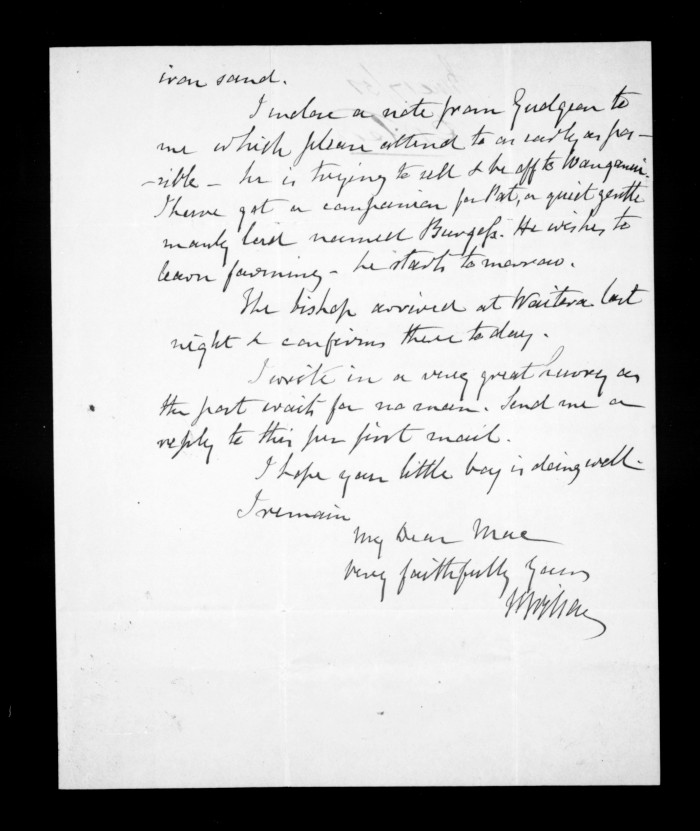 iron sand.
I inclose a note from Gudgeon to
me which please attend to as early as pos-
-sible - he is trying to sell & be off to Wanganui.
I have got a companion for Pat, a quiet gentle
manly lad named Burgess. He wishes to
learn farming - he starts tomorrow.
The bishop arrived at Waitera last
night & confirms there to day.
I write in a very great hurry as
the post waits for no man. Send me a
reply to this per first mail.
I hope your little boy is doing well.
I remain
My Dear Mac
Very faithfully Yours